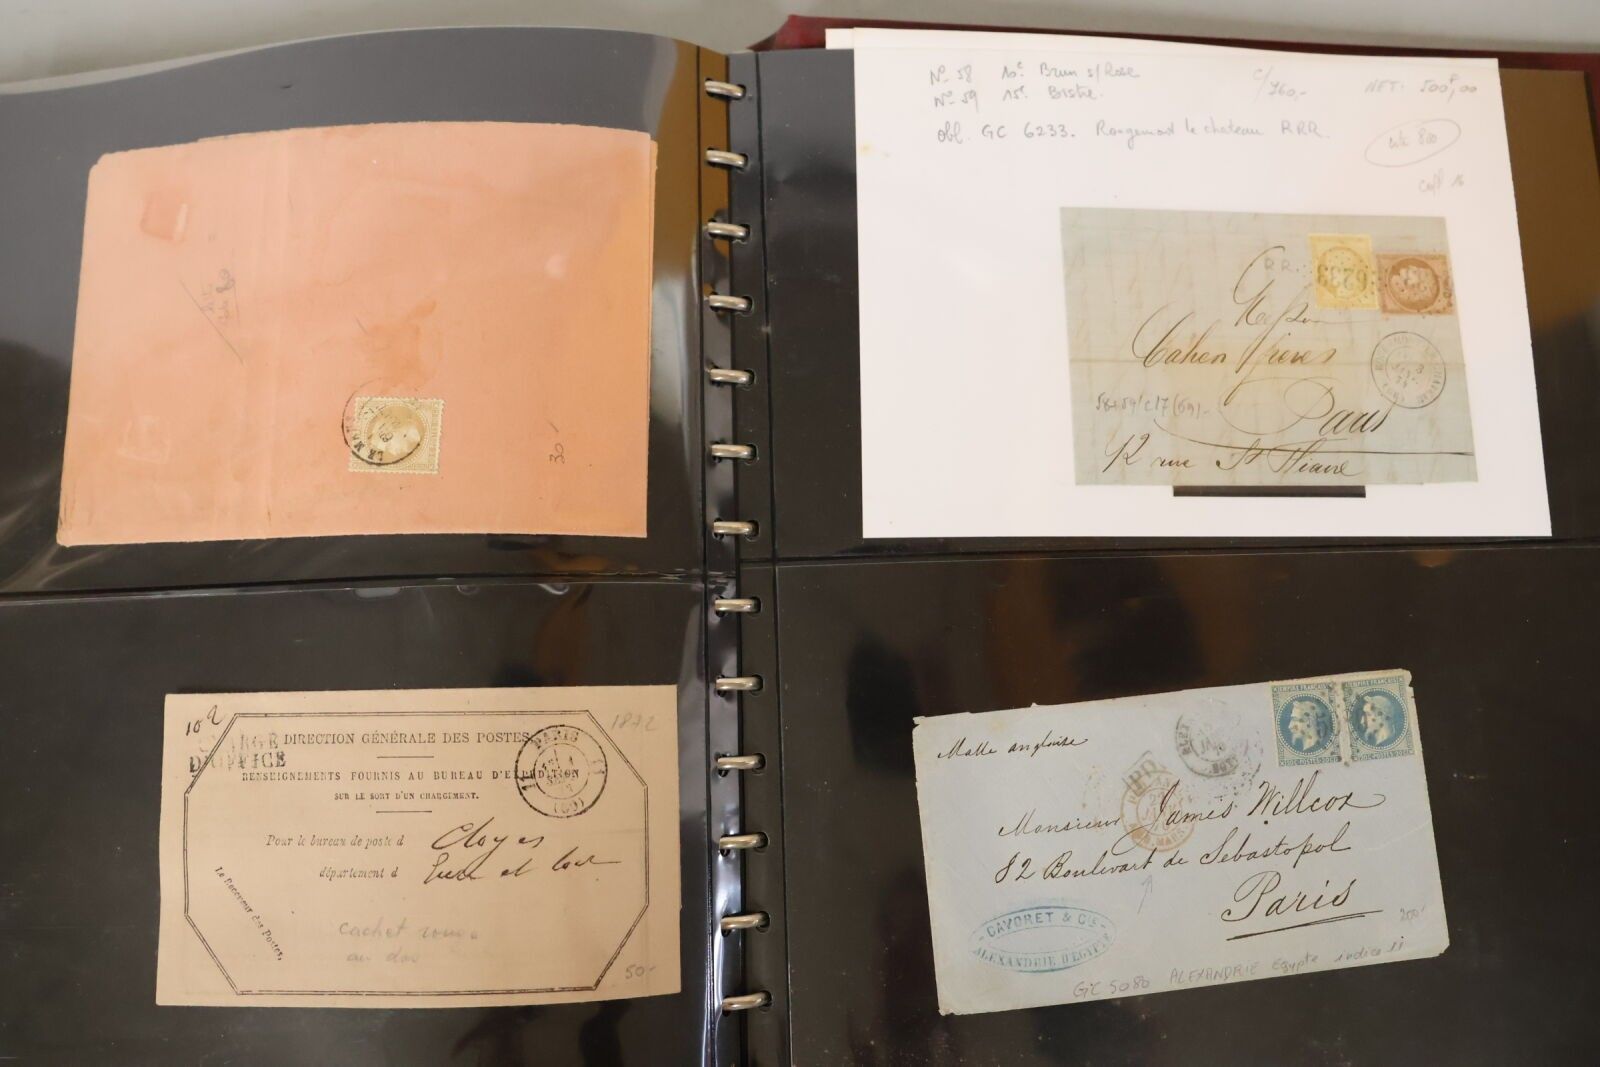 30-
LE MANS
No 58 10c Brun s/Rose c/760,- NET: 500F,00
No 59 15c Bistre.
obl. GC 6233. Rougemont le chateau RRR.
cote 800
coeff 16
R R.
6233
Messieurs
Cahen frères
58+59/c17(69)-
Paris
12 rue St Hiaire
102
1872
CHARGE
D'OFFICE
DIRECTION GÉNÉRALE DES POSTES
PARIS
11
11
(60)
RENSEIGNEMENTS FOURNIS AU BUREAU D'EXPÉDITION
SUR LE SORT D'UN CHARGEMENT.
Pour le bureau de poste d Cloyes
département d Eure et Loir
Le Receveur des Postes,
cachet rouge
au dos
50-
EMPIRE FRANÇAIS EMPIRE FRANÇAIS
20C POSTES 20C 20C POSTES 20C
Malle anglaise
PD
Monsieur James Willcox
82 Boulevart de Sébastopol
Paris
200-
CAVORET & CIE
ALEXANDRIE D'EGYPTE
GC 5080 ALEXANDRIE Egypte indice 11